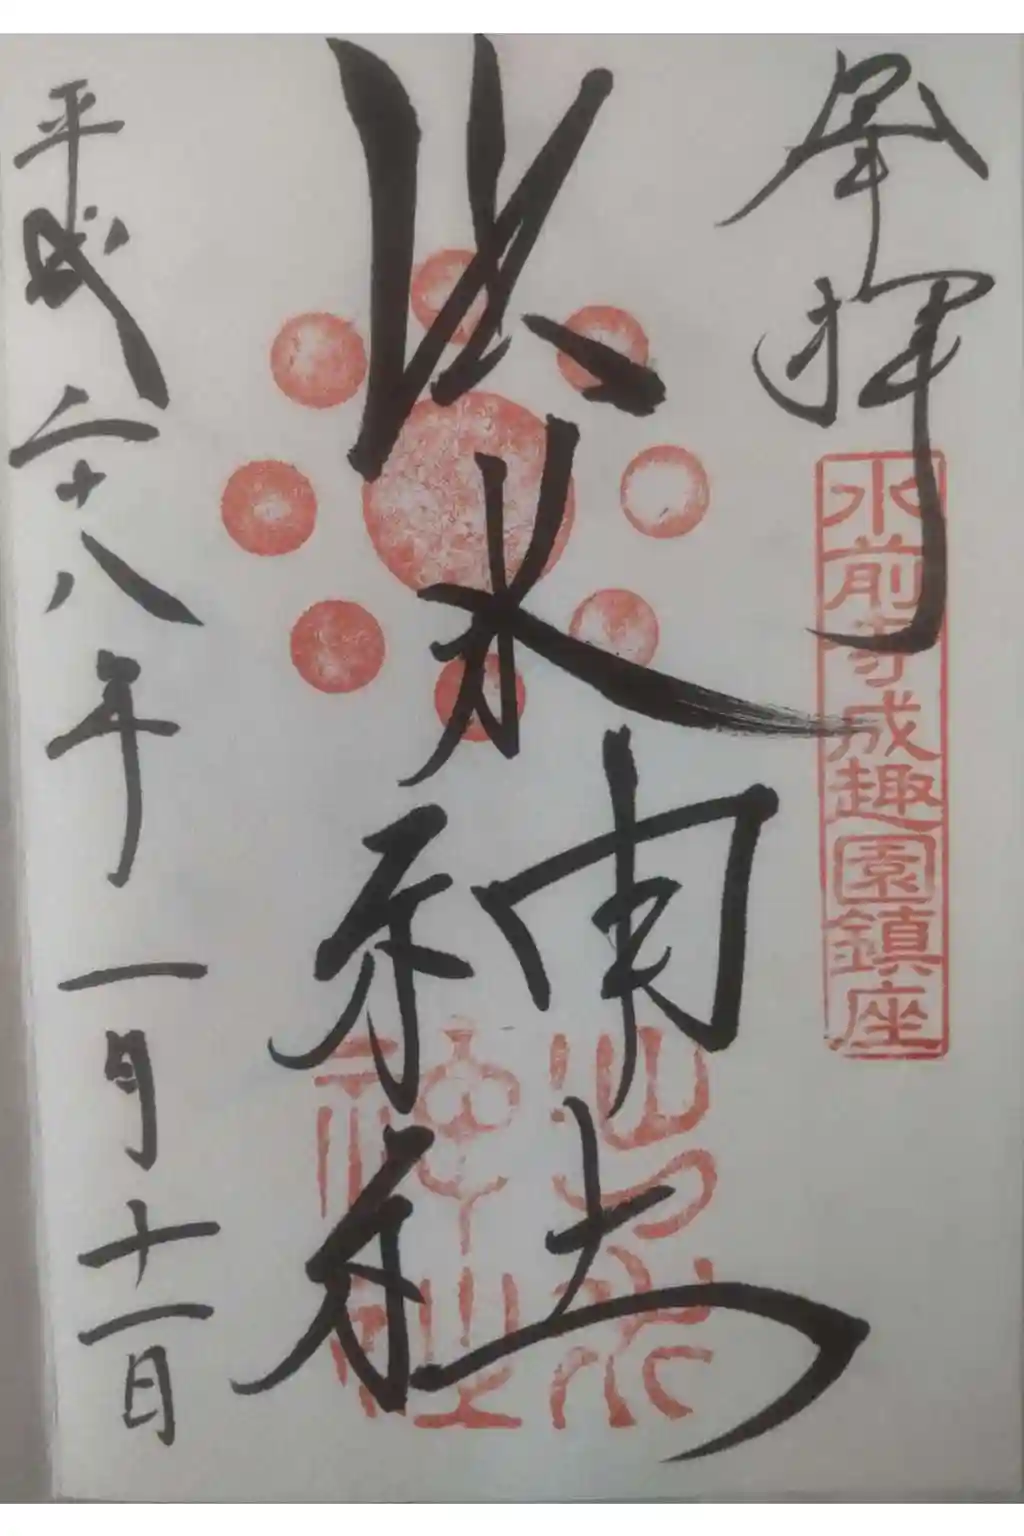 奉拝
水前寺成趣園鎮座
出水神社
出水神社
平成二十八年
一月十一日